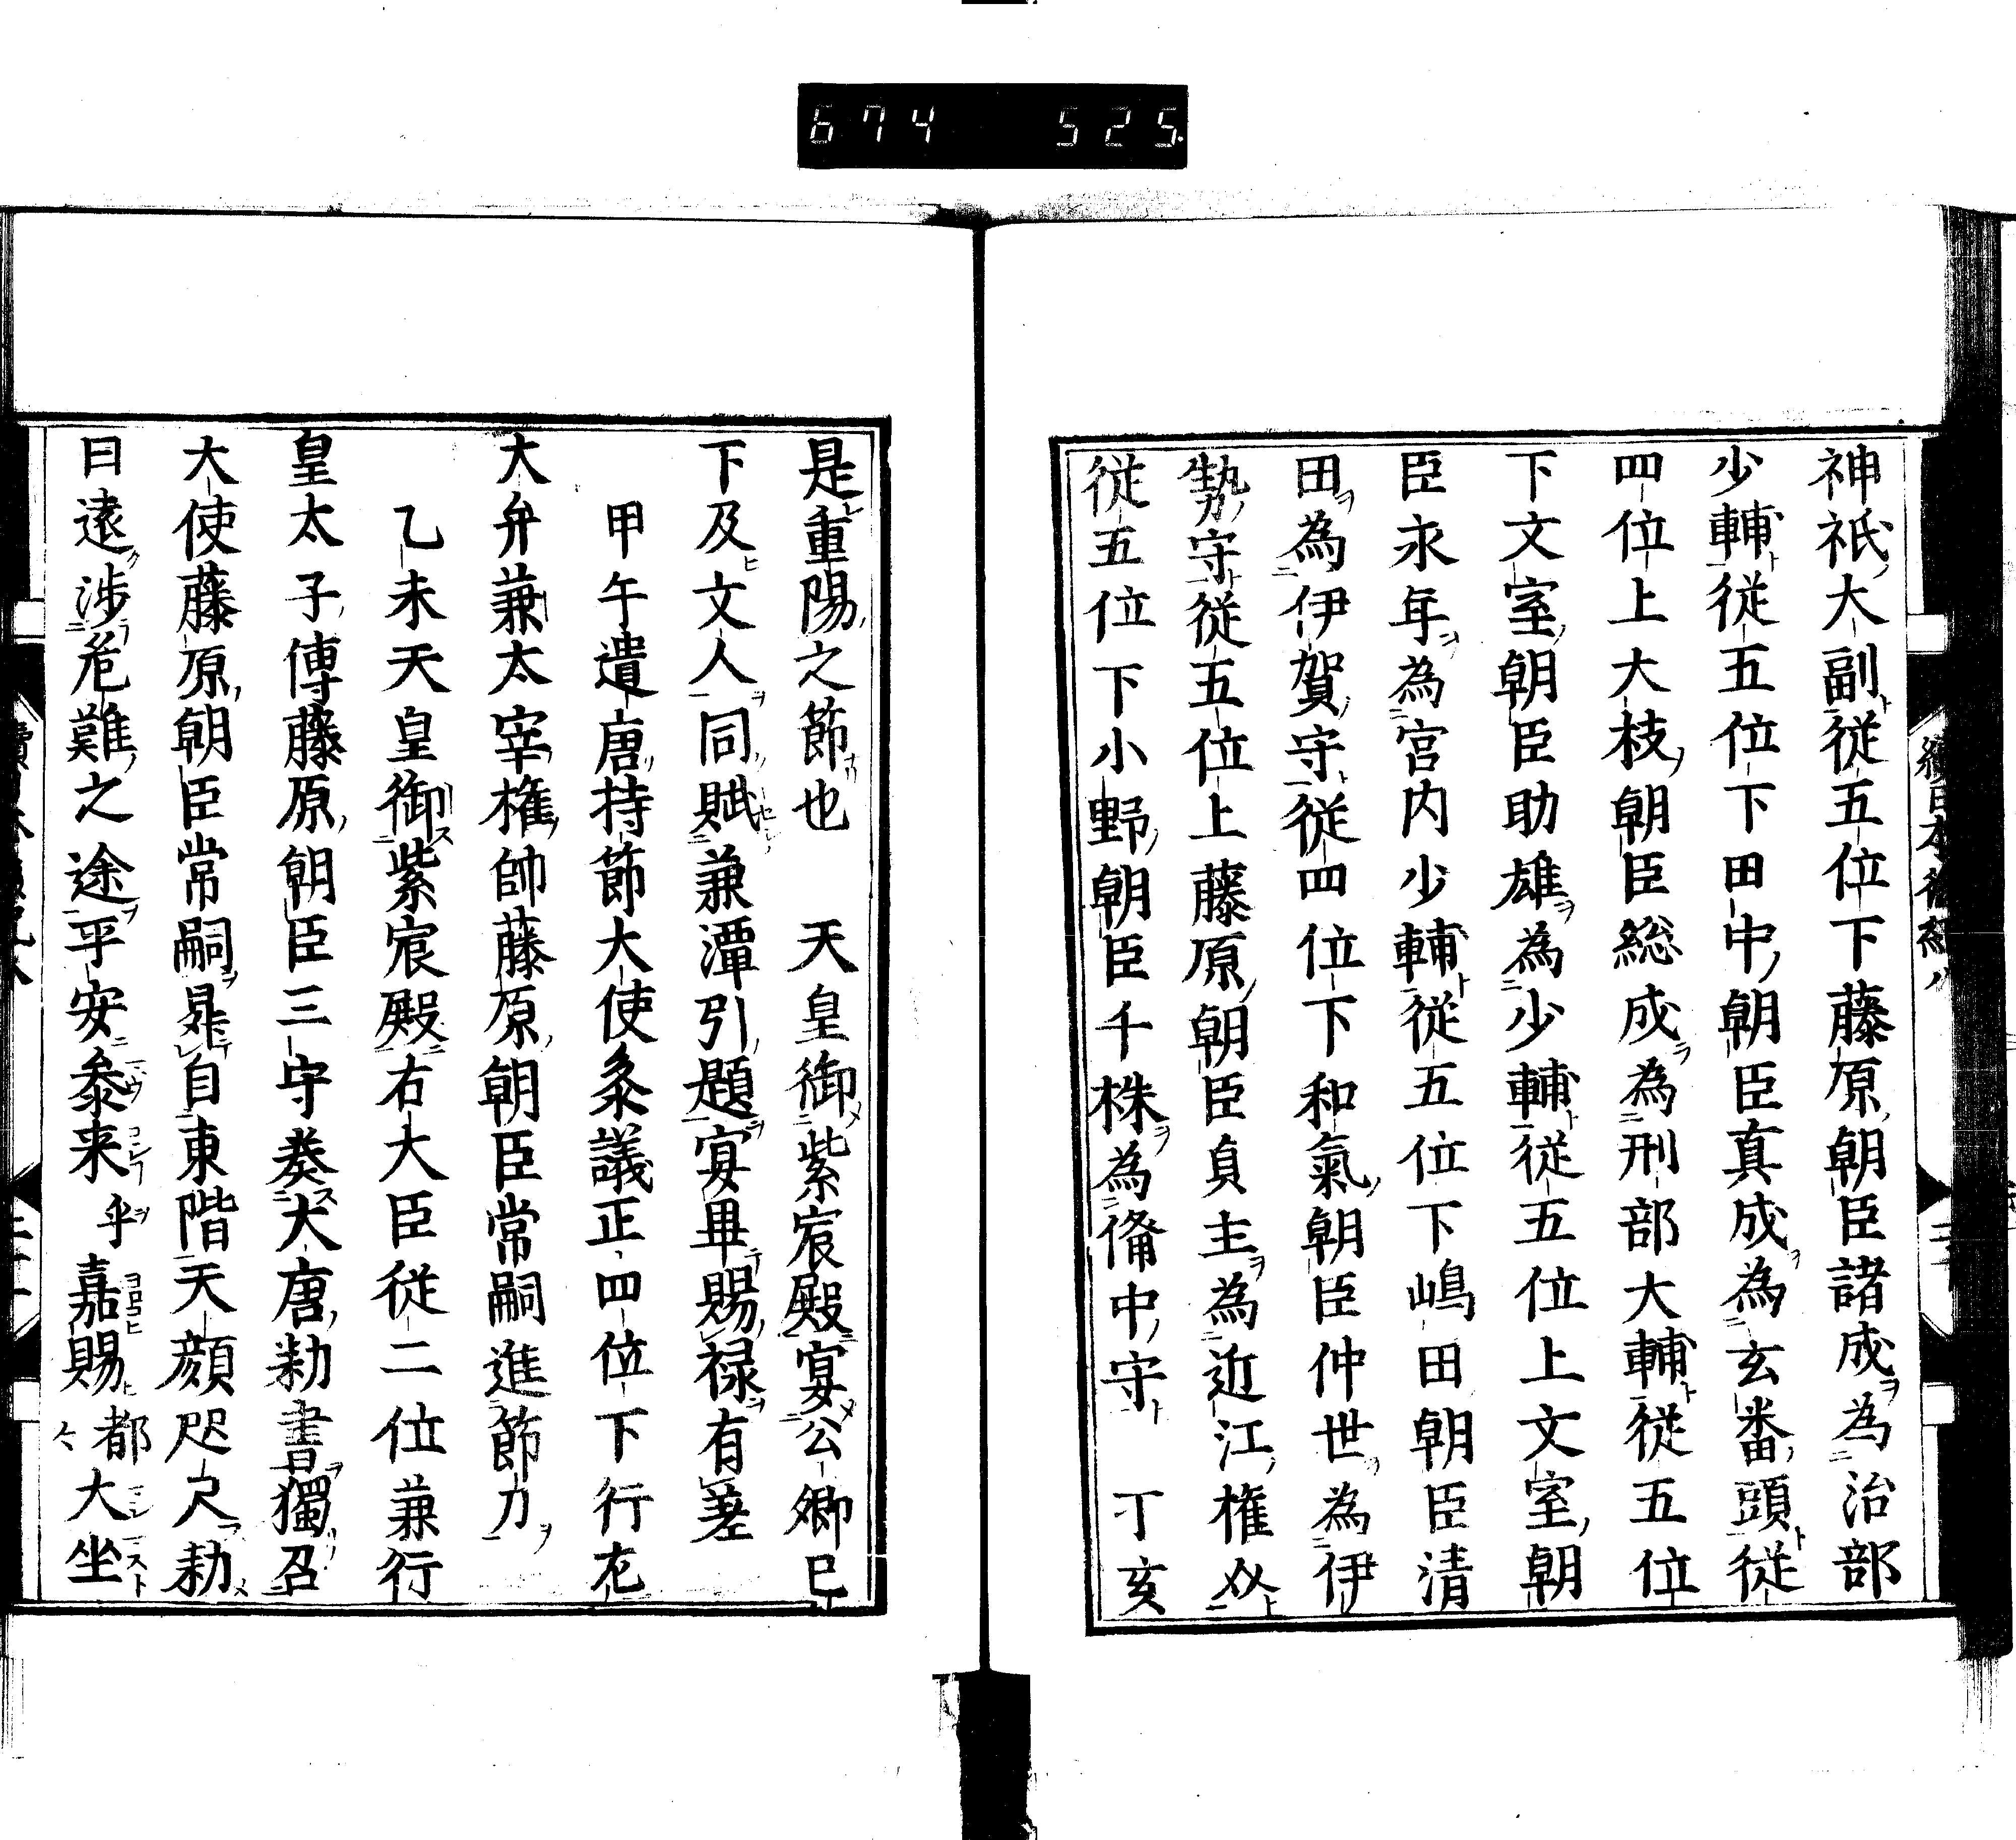 674 525
神祇大副從五位下藤原朝臣諸成為治部
少輔從五位下田中朝臣真成為玄番頭從
四位上大枝朝臣総成為刑部大輔從五位
下文室朝臣助雄為少輔從五位上文室朝
臣永年為宮内少輔從五位下嶋田朝臣清
田為伊賀守從四位下和氣朝臣仲世為伊
勢守從五位上藤原朝臣貞主為近江權介
從五位下小野朝臣千株為備中守 丁亥
是重陽之節也 天皇御紫宸殿宴公卿已
下及文人同賦兼潭引題宴畢賜禄有差
甲午遣唐持節大使參議正四位下行左
大弁兼太宰權帥藤原朝臣常嗣進節刀
乙未天皇御紫宸殿右大臣從二位兼行
皇太子傅藤原朝臣三守奏大唐勅書獨召
大使藤原朝臣常嗣昇自東階天顔咫尺勅
曰遠渉危難之途平安參来乎嘉賜都大坐